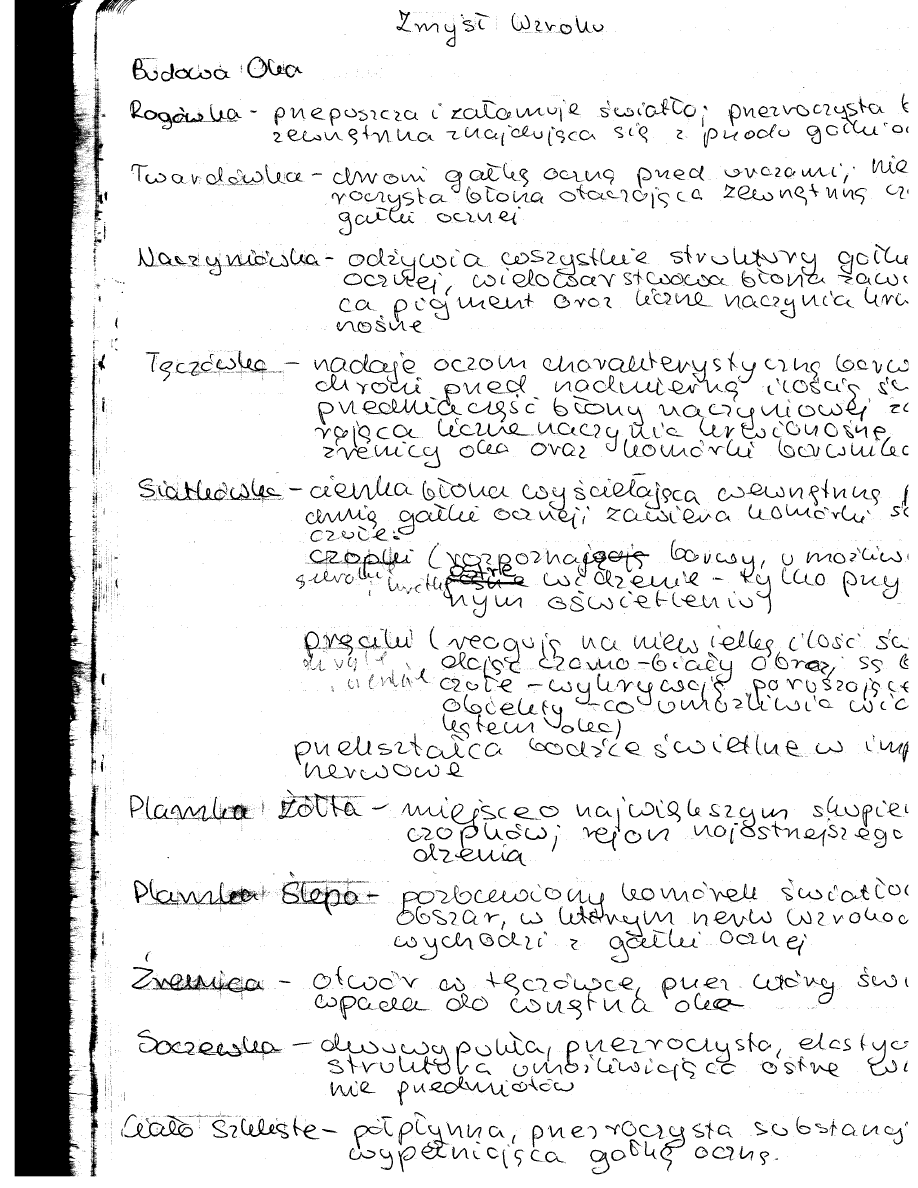 Zmysł Wzroku
Budowa Oka
Rogówka - przepuszcza i załamuje światło; przezroczysta b
zewnętrzna znajdująca się z przodu gałki o
Twardówka - chroni gałkę oczną przed urazami; nie
roczysta błona otaczająca zewnętrzną cz
gałki ocznej
Naczyniówka - odżywia wszystkie struktury gałk
ocznej, wielowarstwowa błona zawi
ca pigment oraz liczne naczynia krw
nośne
Tęczówka - nadaje oczom charakterystyczną barw
chroni przed nadmierną ilością św
przednia część błony naczyniowej za
rająca liczne naczynia krwionośne
źrenicy oka oraz komórki barwniko
Siatkówka - cienka błona wyścielająca wewnętrzną p
chnię gałki ocznej; zawiera komórki św
czułe:
czopki (rozpoznają barwy, umożliw
szerokie i krótkie ostre widzenie - tylko przy
nym oświetleniu)
pręciki (reagują na niewielką ilość św
długie dając czarno-biały obraz, są b
i cienkie czułe - wykrywają poruszające
obiekty - co umożliwia wid
kątem oka)
przekształca bodźce świetlne w imp
nerwowe
Plamka Żółta - miejsce o największym skupien
czopków; rejon najostrzejszego
dzenia
Plamka Ślepa - pozbawiony komórek światło
obszar, w którym nerw wzroko
wychodzi z gałki ocznej
Źrenica - otwór w tęczówce, przez który świ
wpada do wnętrza oka
Soczewka - dwuwypukła, przezroczysta, elastyc
struktura umożliwiająca ostre wi
nie przedmiotów
Ciało Szkliste - półpłynna, przezroczysta substancj
wypełniająca gałkę oczną.